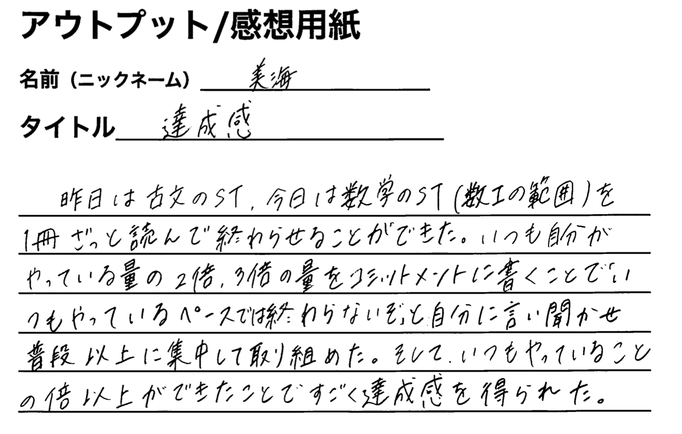 アウトプット/感想用紙
名前（ニックネーム） 美海
タイトル 達成感
昨日は古文のST、今日は数学のST(数Iの範囲)を
1冊ざっと読んで終わらせることができた。いつも自分が
やっている量の2倍、3倍の量をコミットメントに書くことでい
つもやっているペースでは終わらないぞ、と自分に言い聞かせ
普段以上に集中して取り組めた。そして、いつもやっていること
の倍以上ができたことですごく達成感を得られた。